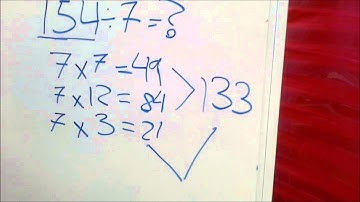 154÷7=?
7×7=49
7×12=84 >133
7×3=21